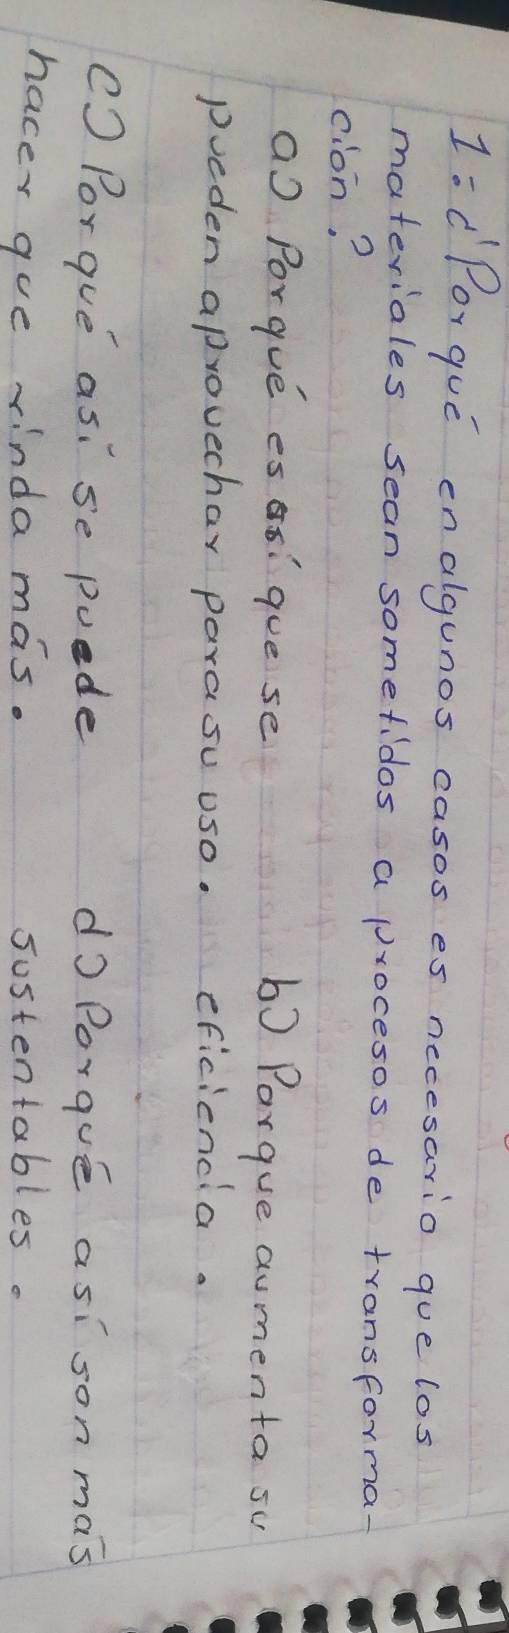 1.- ¿Porqué en algunos casos es necesario que los
materiales sean sometidos a procesos de transforma-
ción?
a) Porqué es así que se
pueden aprovechar para su uso.
b) Porque aumenta su
eficiencia.
c) Porqué así se puede
hacer que rinda más.
d) Porqué así son más
sustentables.